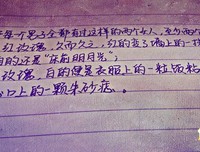 每个男子全都有过这样的两个女人,至少两个
红玫瑰,久而久之,红的变了墙上的一抹
白的还是“床前明月光”;
玫瑰,白的便是衣服上的一粒饭粘
心口上的一颗朱砂痣。